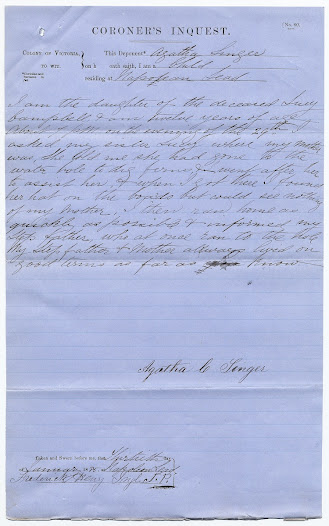 CORONER'S INQUEST.
[No. 60.
COLONY OF VICTORIA, This Deponent Agatha Singer
TO WIT. on h oath saith, I am a Child
residing at Napoleon Lead
I am the daughter of the deceased Lucy
Campbell & am twelve years of age
About past on evening of the 29th I
asked my sister Lucy where my mother
was, she told me she had gone to the
water hole to dig ferns, I went after her
to assist her & when I got there I found
her hat on the boards but could see nothing
of my Mother, I then ran home as
quickly as possible & informed my
Step father, who at once ran to the hole
My Step father & Mother always lived on
good terms as far as I know
Agatha C Singer
Taken and Sworn before me, this Thirtieth
January Napoleon Lead
Frederick J.P.